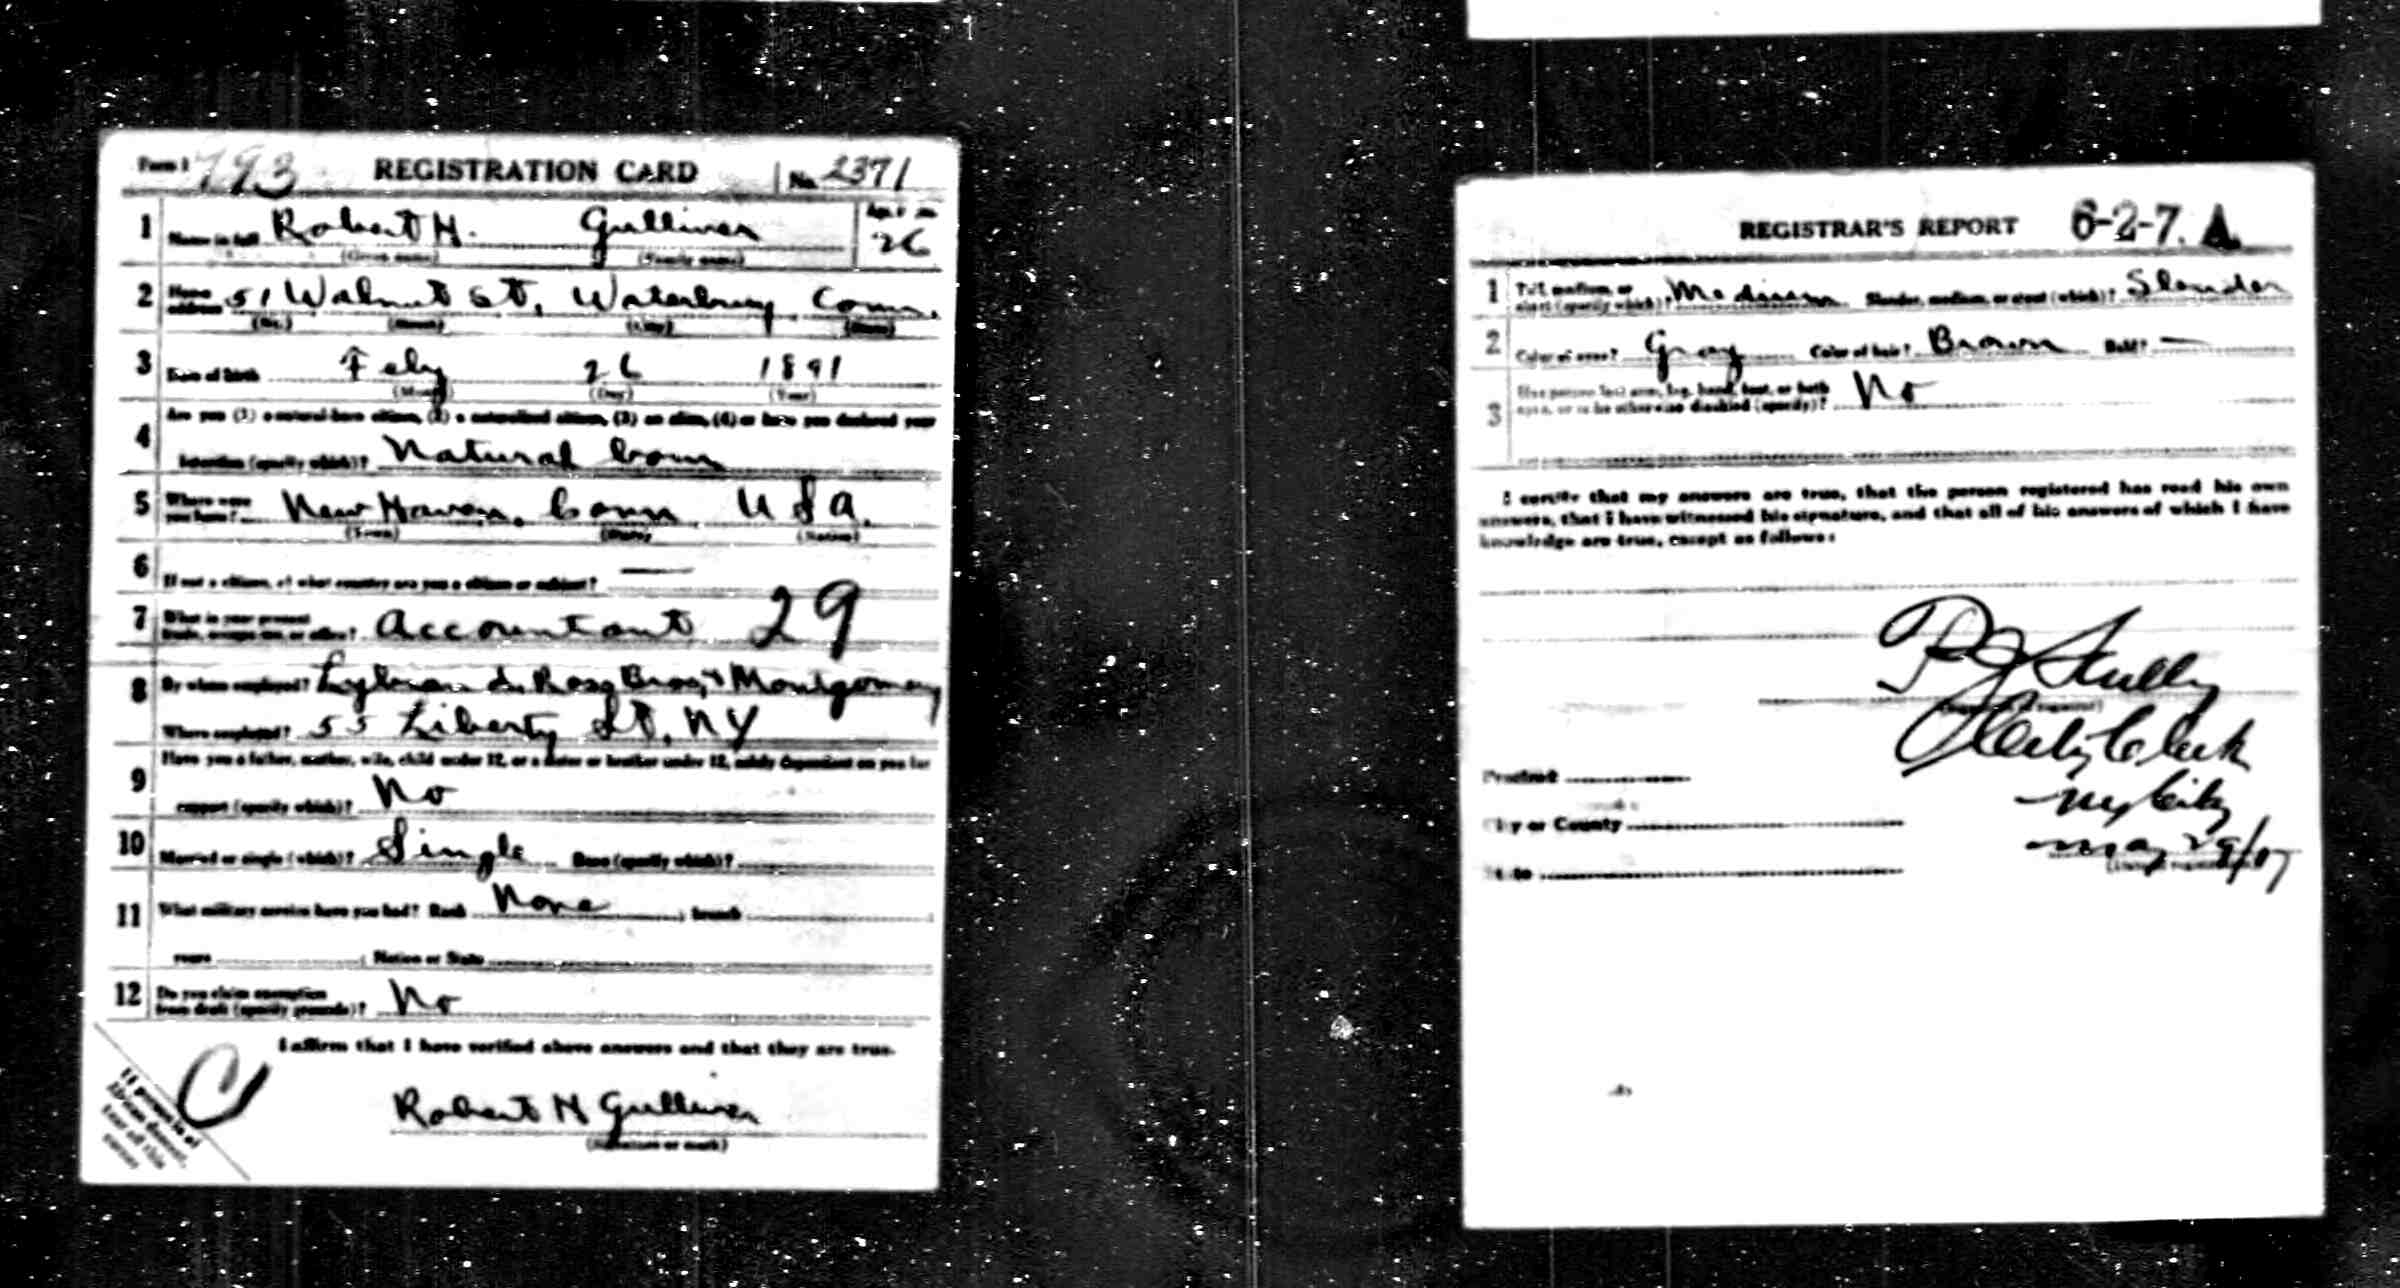 Form 1 793 REGISTRATION CARD No. 2371
1 Name in full Robert H. Gulliver Age, in yrs. 26
(Given name) (Family name)
2 Home address 51 Walnut St, Waterbury Conn.
(No.) (Street) (City) (State)
3 Date of birth Feby 26 1891
(Month) (Day) (Year)
Are you (1) a natural-born citizen, (2) a naturalized citizen, (3) an alien, (4) or have you declared your
4 intention (specify which)? Natural born
5 Where were you born? New Haven, Conn U S A.
(Town) (State) (Nation)
6 If not a citizen, of what country are you a citizen or subject? —
7 What is your present trade, occupation, or office? Accountant 29
8 By whom employed? Lybrand, Ross Bros, & Montgomery
Where employed? 55 Liberty St, NY
Have you a father, mother, wife, child under 12, or a sister or brother under 12, solely dependent on you for
9 support (specify which)? No
10 Married or single (which)? Single Race (specify which)?
11 What military service have you had? Rank None ; branch
years ; Nation or State
12 Do you claim exemption from draft (specify grounds)? No
I affirm that I have verified above answers and that they are true.
Robert H Gulliver
(Signature or mark)
C
If person is of
African descent,
tear off this
corner
REGISTRAR'S REPORT 6-2-7. A
1 Tall, medium, or short (specify which)? Medium Slender, medium, or stout (which)? Slender
2 Color of eyes? Gray Color of hair? Brown Bald? —
3 Has person lost arm, leg, hand, foot, or both eyes, or is he otherwise disabled (specify)? No
I certify that my answers are true, that the person registered has read his own
answers, that I have witnessed his signature, and that all of his answers of which I have
knowledge are true, except as follows:
P J Scully
City Clerk
Precinct
NY City
City or County
May 29/17
State